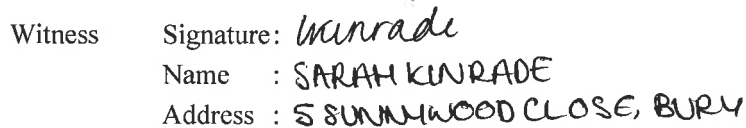 Witness Signature: Kinrade
Name : SARAH KINRADE
Address : 5 SUNNYWOOD CLOSE, BURY